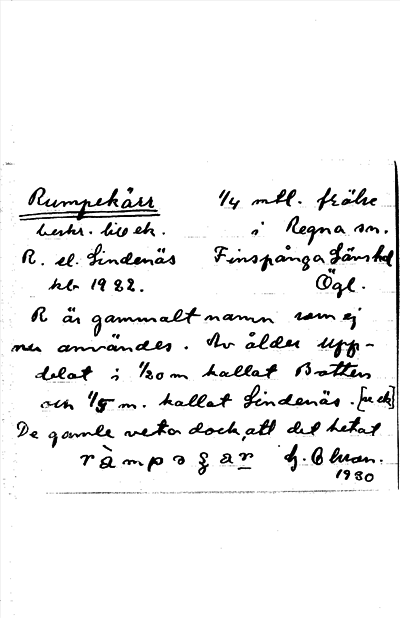 Rumpekärr 1/4 mtl. frälse
beskr. bil ek. i Regna sn.
R. el. Lindenäs Finspånga Länshd
kb 1922. Ögl.
R är gammalt namn som ej
nu användes. Av ålder upp-
delat i 1/20 m kallat Botten
och 1/5 m. kallat Lindenäs. [se ek]
De gamle veta dock, att det hetat
G.
1930